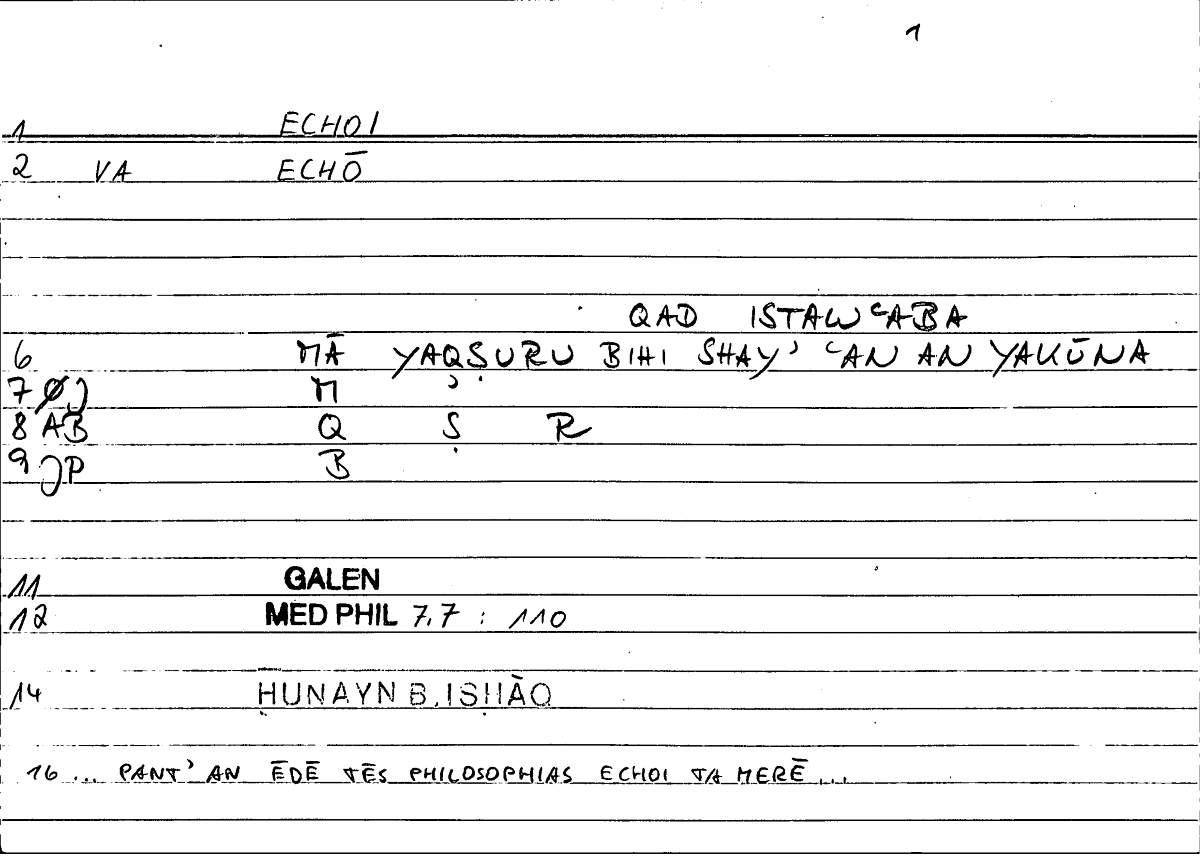 1
1 ECHOI
2 VA ECHŌ
QAD ISTAWʿABA
6 MĀ YAQṢURU BIHI SHAYʾ ʿAN AN YAKŪNA
7 ØJ M ʾ
8 AB Q Ṣ R
9 JP B
11 GALEN
12 MED PHIL 7,7 : 110
14 ḤUNAYN B. ISḤĀQ
16 ... PANT' AN ĒDĒ TĒS PHILOSOPHIAS ECHOI TA MERĒ ...